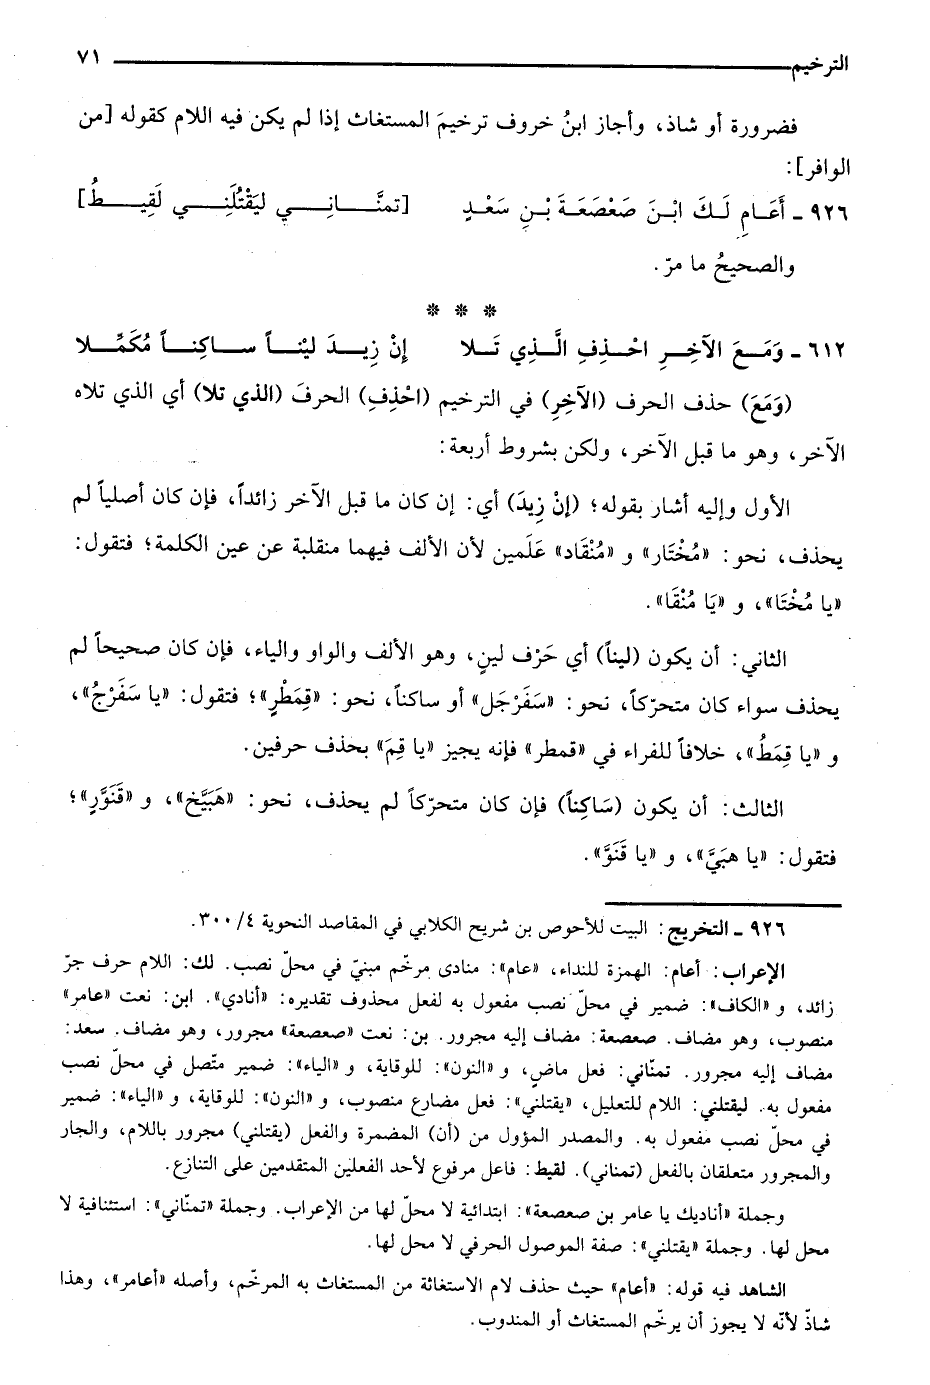 الترخيم ٧١
فضرورة أو شاذ، وأجاز ابنُ خروف ترخيمَ المستغاث إذا لم يكن فيه اللام كقوله [من
الوافر]:
٩٢٦ ـ أَعَـامِ لَـكَ ابْـنَ صَعْصَعَـةَ بْـنِ سَعْـدٍ [تمنَّـانِـي ليَقْتُلَنِـي لَقِيـطُ]
والصحيحُ ما مرّ.
* * *
٦١٢ ـ وَمَـعَ الآخِـرِ احْـذِفِ الَّـذِي تَـلا إنْ زِيـدَ لَيْنـاً سـاكِنـاً مُكَمِّـلا
(وَمَعَ) حذف الحرف (الآخِرِ) في الترخيم (احْذِفِ) الحرفَ (الذي تلا) أي الذي تلاه
الآخر، وهو ما قبل الآخر، ولكن بشروط أربعة:
الأول وإليه أشار بقوله؛ (إنْ زِيدَ) أي: إن كان ما قبل الآخر زائداً، فإن كان أصلياً لم
يحذف، نحو: «مُخْتَار» و «مُنْقَاد» عَلَمين لأن الألف فيهما منقلبة عن عين الكلمة؛ فتقول:
«يا مُخْتَا»، و «يَا مُنْقَا».
الثاني: أن يكون (ليناً) أي حَرْف لينٍ، وهو الألف والواو والياء، فإن كان صحيحاً لم
يحذف سواء كان متحرّكاً، نحو: «سَفَرْجَل» أو ساكناً، نحو: «قِمَطْرٍ»؛ فتقول: «يا سَفَرْجُ»،
و «يا قِمَطُ»، خلافاً للفراء في «قمطر» فإنه يجيز «يا قِمَ» بحذف حرفين.
الثالث: أن يكون (سَاكِناً) فإن كان متحرّكاً لم يحذف، نحو: «هَبَيَّخ»، و «قَنَوَّرٍ»؛
فتقول: «يا هبَيَّ»، و «يا قَنَوَّ».
٩٢٦ ـ التخريج: البيت للأحوص بن شريح الكلابي في المقاصد النحوية ٤/ ٣٠٠.
الإعراب: أعام: الهمزة للنداء، «عام»: منادى مرخّم مبنيّ في محلّ نصب. لك: اللام حرف جرّ
زائد، و «الكاف»: ضمير في محلّ نصب مفعول به لفعل محذوف تقديره: «أنادي». ابن: نعت «عامر»
منصوب، وهو مضاف. صعصعة: مضاف إليه مجرور. بن: نعت «صعصعة» مجرور، وهو مضاف. سعد:
مضاف إليه مجرور. تمنّاني: فعل ماضٍ، و «النون»: للوقاية، و «الياء»: ضمير متّصل في محلّ نصب
مفعول به. ليقتلني: اللام للتعليل، «يقتلني»: فعل مضارع منصوب، و «النون»: للوقاية، و «الياء»: ضمير
في محلّ نصب مفعول به. والمصدر المؤول من (أن) المضمرة والفعل (يقتلني) مجرور باللام، والجار
والمجرور متعلقان بالفعل (تمناني). لقيط: فاعل مرفوع لأحد الفعلين المتقدمين على التنازع.
وجملة «أناديك يا عامر بن صعصعة»: ابتدائية لا محلّ لها من الإعراب. وجملة «تمنّاني»: استئنافية لا
محل لها. وجملة «يقتلني»: صفة الموصول الحرفي لا محل لها.
الشاهد فيه قوله: «أعام» حيث حذف لام الاستغاثة من المستغاث به المرخّم، وأصله «أعامر»، وهذا
شاذّ لأنّه لا يجوز أن يرخّم المستغاث أو المندوب.